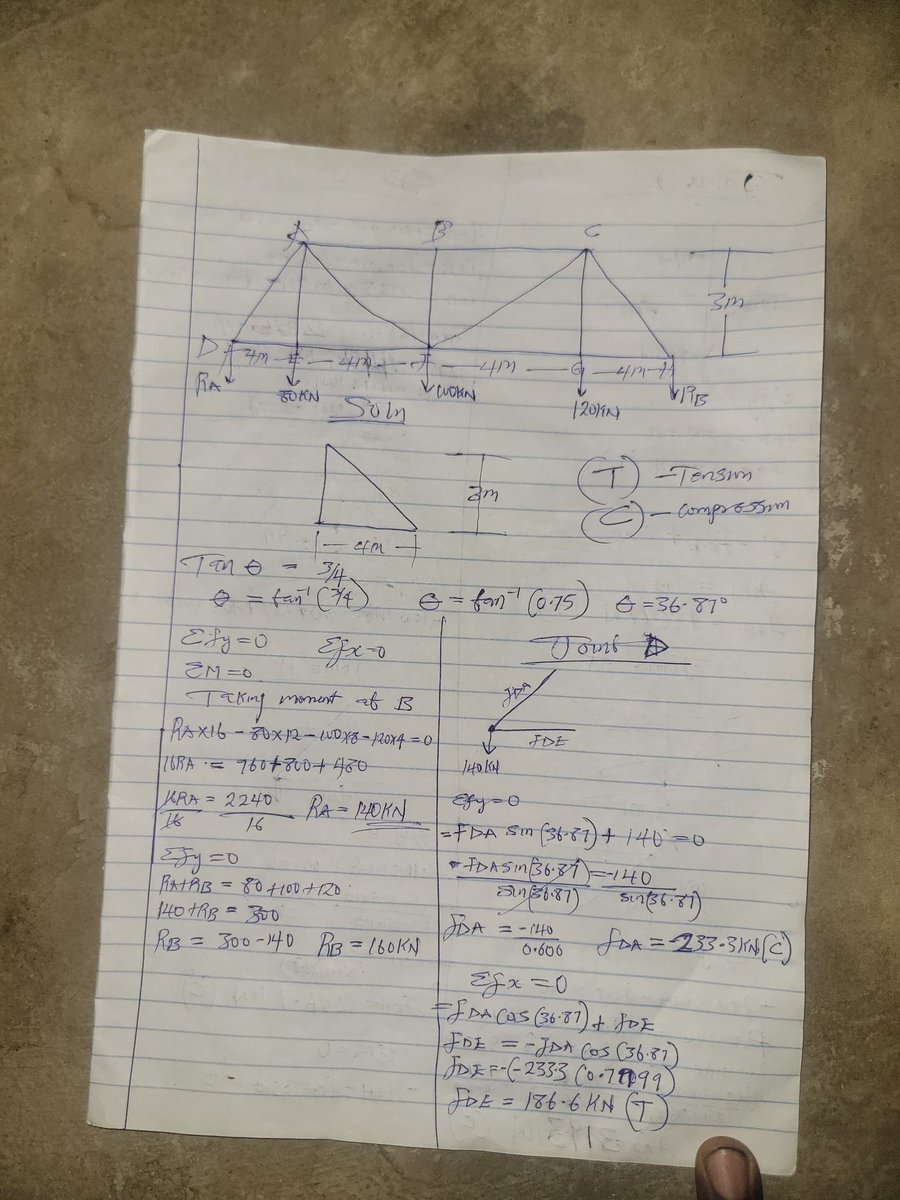 A B C
3m
D 4m E 4m F 4m G 4m H
RA 80KN 100KN 120KN RB
Soln
3m
4m
(T) - Tension
(C) - compression
Tan θ = 3/4
θ = tan⁻¹(3/4) θ = tan⁻¹(0.75) θ = 36.87°
Σfy=0 Σfx=0
ΣM=0
Taking moment at B
RA×16 - 80×12 - 100×8 - 120×4 = 0
16RA = 960+800+480
16RA/16 = 2240/16 RA = 140KN
Σfy=0
RA+RB = 80+100+120
140+RB = 300
RB = 300-140 RB = 160KN
Joint D
fDA
fDE
140KN
Σfy=0
=fDA sin(36.87) + 140 = 0
fDA sin(36.87)/sin(36.87) = -140/sin(36.87)
fDA = -140/0.600 fDA = -233.3KN (C)
Σfx = 0
=fDA cos(36.87) + fDE
fDE = -fDA cos(36.87)
fDE = -(-2333 (0.7999)
fDE = 186.6KN (T)